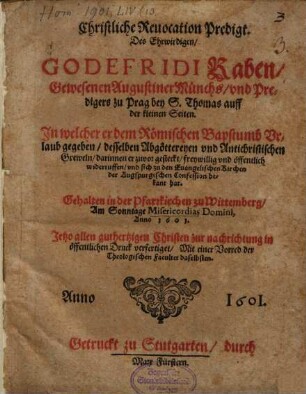 Hom 1901, LIV, 10
Christliche Reuocation Predigt.
Des Ehrwirdigen/
GODEFRIDI Raben/
Gewesenen Augustiner Münchs/ vnd Pre-
digers zu Prag bey S. Thomas auff
der kleinen Seiten.
In welcher er dem Römischen Bapstumb Vr-
laub gegeben/ desselben Abgöttereyen vnd Antichristischen
Greweln/ darinnen er zuvor gesteckt/ freywillig vnd öffentlich
widerruffen/ vnd sich zu den Euangelischen Kirchen
der Augspurgischen Confession be-
kant hat.
Gehalten in der Pfarrkirchen zu Wittemberg/
Am Sonntage Misericordias Domini,
Anno 1601.
Jetzo allen guthertzigen Christen zur nachrichtung in
öffentlichen Druck verfertiget/ Mit einer Vorred der
Theologischen Facultet daselbsten.
Anno 1601.
Getruckt zu Stutgarten/ durch
Max Fürstern.